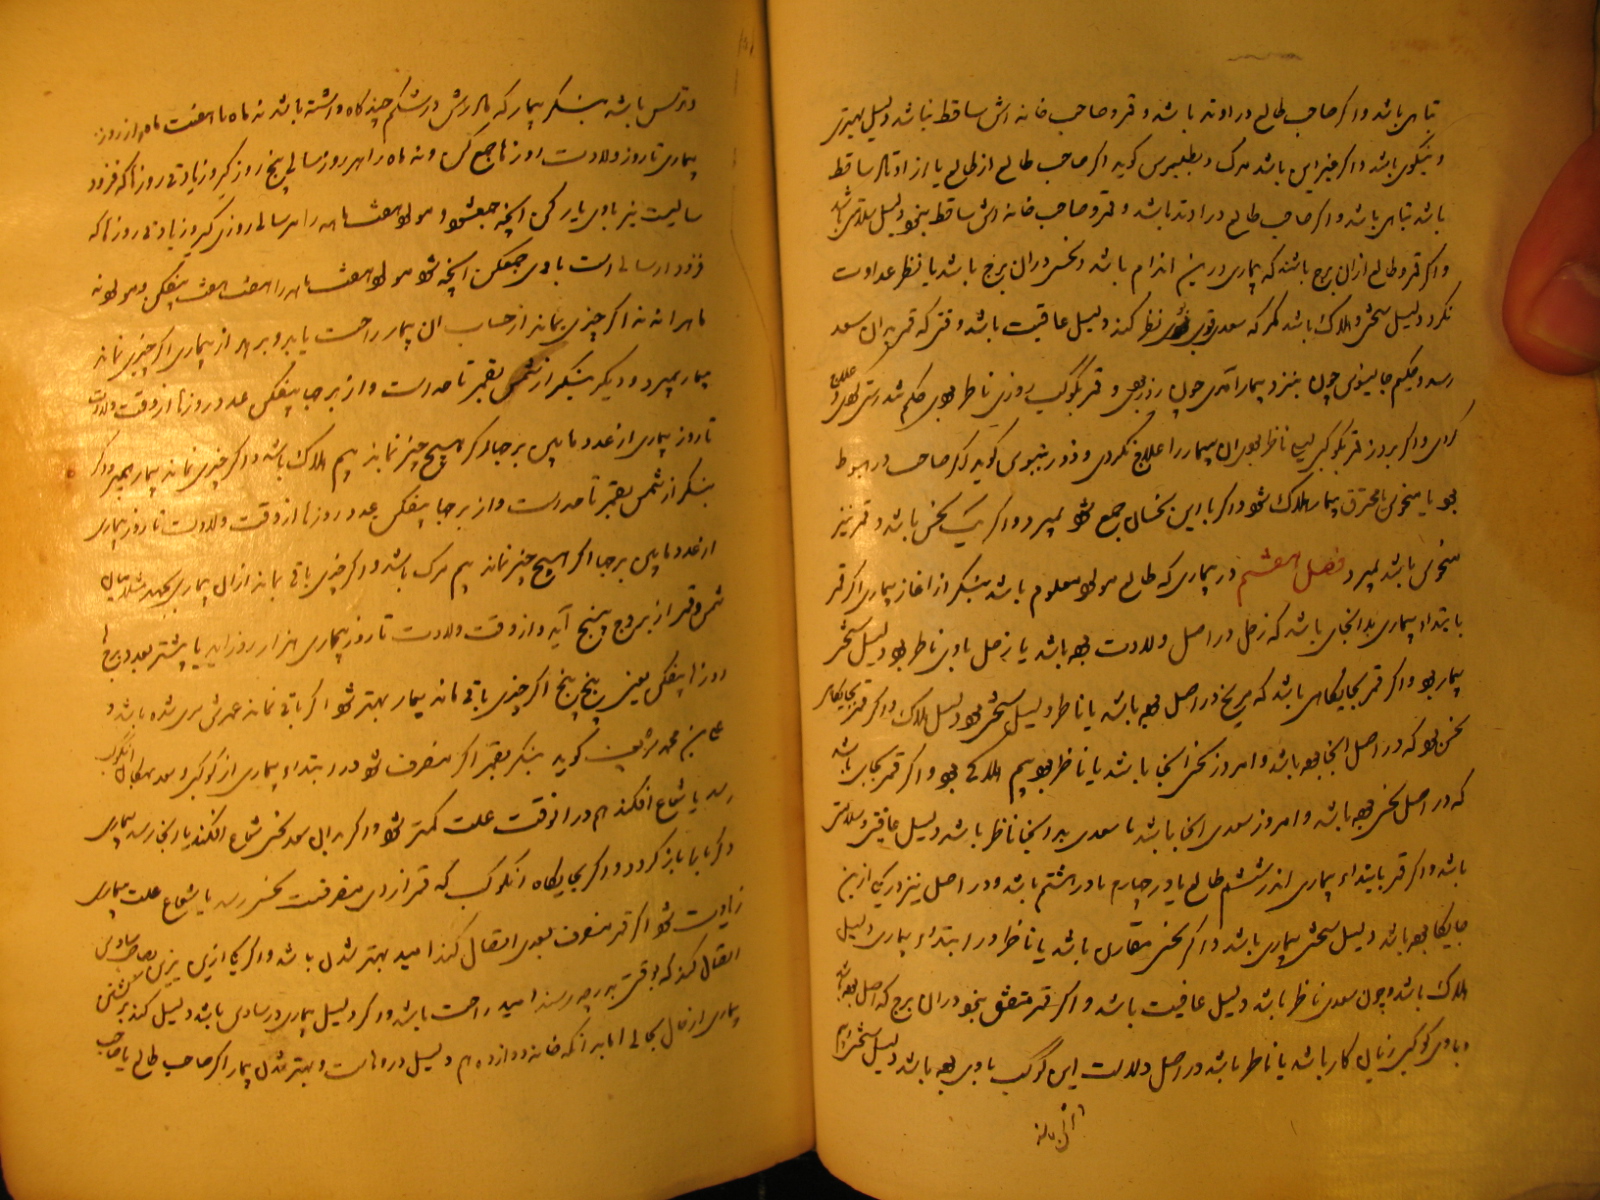 تباهی باشد و اکر صاحب طالع در اوتد باشد و قمر و صاحب خانه اش ساقط نباشد دلیل بهتری
و نیکوی باشد و اکر غیر این باشد مرک و بطلمیوس کوید اکر صاحب طالع از طالع یا از اوتاد ساقط
باشد تباهی باشد و اکر صاحب طالع در اوتد باشد و قمر و صاحب خانه اش ساقط نبود دلیل سلامتی باشد
و اکر قمر و طالع از ان برج باشند که بیماری درین اندام باشد و نحس دران برج باشد یا بنظر عداوت
نکرد دلیل سختی و هلاک باشد مکر که سعدی قوی نظر کند دلیل عاقبت باشد وقتی که قمر بدان سعد
رسد و حکیم جالینوس چون بنزد بیمار آمدی چون روز و قمر بکوکب روزی ناظر بودی حکم
کردی و اکر بروز قمر بکوکب ناظر بودی ان بیمار را علاج نکردی و کوید اکر صاحب در هبوط
بود یا منحوس یا محترق بیمار هلاک شود و اکر با این نحسان جمع شود بمیرد و اکر یک نحس باشد و قمر نیز
منحوس باشد بمیرد فصل هفتم در بیماری که طالع مولود معلوم باشد بنکر از اغاز بیماری اکر قمر
بابتداء بیماری بدانجای باشد که زحل در اصل ولادت بوده باشد یا زحل باوی ناظر بود دلیل سختی
بیمار بود و اکر قمر بجایکاهی باشد که مریخ در اصل بوده باشد یا ناظر دلیل سختی بود دلیل هلاک و اکر قمر بجایکاه
نحس بود که در اصل انجا بوده باشد و امروز نحس انجا باشد یا ناظر بود بیم هلاکی بود و اکر قمر بجای باشد
که در اصل نحس بوده باشد و امروز سعدی انجا باشد یا سعدی بدانجا ناظر باشد دلیل عافیت و سلامتی
باشد و اکر قمر بابتداء بیماری اندر ششم طالع یا در چهارم یا در هشتم باشد و در اصل نیز در یکی ازین
جایکاه بوده باشد دلیل سختی بیماری باشد و اکر نحس مقارن باشد یا ناظر در ابتداء بیماری دلیل
هلاک باشد و چون سعدی ناظر باشد دلیل عافیت باشد و اکر قمر متفق نبود دران برج که اصل بوده باشد
و باوی کوکبی زیان کار باشد یا ناظر باشد در اصل ولادت این کوکب باوی بوده باشد دلیل سختی
و ترس باشد بنکر بیمار که مادرش در شکم چند کاه داشته باشد نه ماه یا هفت ماه از روز
بیماری تا روز ولادت روزها جمع کن و نه ماه را بهر روز سالی پنج روز کیر و زیادتی روزها که فزود
سالیست نیز باوی یار کن انچه جمع شود و مولود هفت ماهه را هر سالی روزی کیر و زیادتی روزها که
فزود از سالی است باوی جمع کن انچه شود مولود هفت ماهه را هفت هفت بیفکن و مولود نه
ماهه را نه نه اکر چیزی بماند از حساب ان بیمار راحت یابد و برهد از بیماری اکر چیزی نماند
بیمار بمیرد و دیکر بنکر از شمس بقمر تا صد است و از بر جا بیفکن عدد روزها از وقت ولادت
تا روز بیماری از عدد ماهین بر جا اکر هیچ چیز نماند بیم هلاک باشد و اکر چیزی نماند بیمار بمیرد و اکر
بنکر از شمس بقمر تا صد است و از بر جا بیفکن عدد روزها از وقت ولادت تا روز بیماری
از عدد ماهین بر جا اکر هیچ چیز نماند بیم مرک باشد و اکر چیزی باقی بماند از ان بیماری
شمس و قمر از بروج پنج آید و از وقت ولادت تا روز بیماری هزار روز اید یا بیشتر بعدد برج
روزها بیفکن یعنی پنج پنج اکر چیزی باقی ماند بیمار بهتر شود اکر باقی نماند عمرش سری شده باشد و
علی بن محمد کوید بنکر بقمر اکر منصرف شود در ابتداء بیماری از کوکبی و سعد بمکان
رسد یا شعاع افکند هم در انوقت علت کمتر شود و اکر بدان سعد نحس شعاع افکند یا انجا رسد بیماری
دکر باره باز کردد و اکر بجایکاه انکوکب که قمر از وی منصرفست نحس رسد یا شعاع علت بیماری
زیادت شود اکر قمر منصرف بسعدی اتصال کند امید بهتر شدن باشد و اکر یکی ازین نیزین بصاحب سادس
اتصال کند که بوقتی بدرجه رسند امید راحت باشد و اکر دلیل بیماری در سادس باشد دلیل کند بر کشتن
بیماری از حال بحالی اما بدانکه خانه دوازدهم دلیل دردهاست و بهتر شدن بیمار اکر صاحب طالع با صاحب